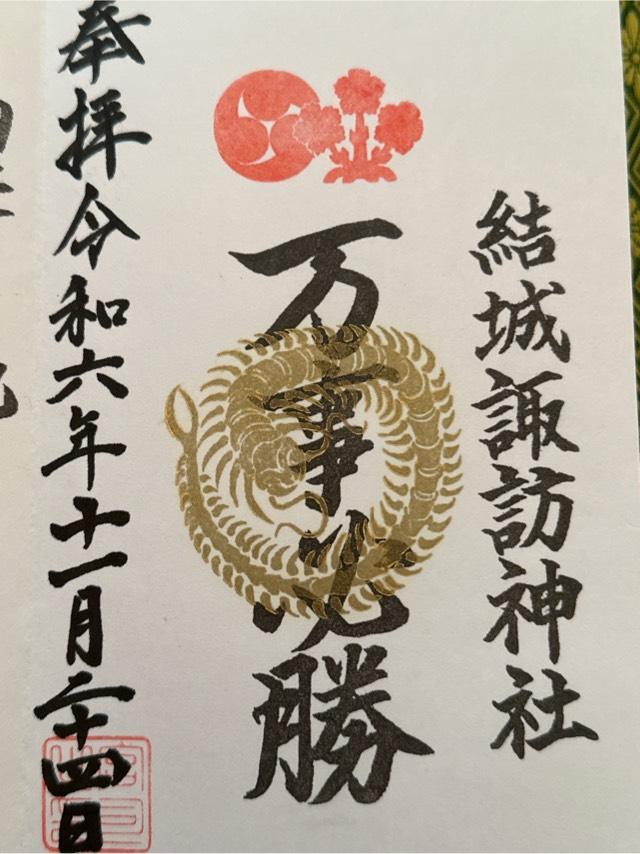 結城諏訪神社
万事必勝
奉拝令和六年十一月二十四日